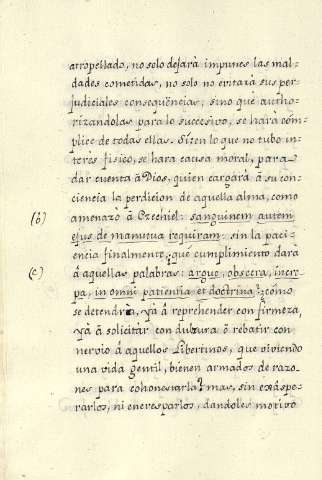 atropellado, no solo dejarà impunes las mal-
dades cometidas, no solo no evitarà sus per-
judiciales consequencias; sino que autho-
rizandolas para lo succesivo, se harà cóm-
plice de todas ellas. Si en lo que no tubo in-
terès fisico, se hara causa moral, para
dar cuenta à Dios, quien cargarà à su con-
ciencia la perdicion de aquella alma, como
(b) amenazò à Ezechiel: sanguinem autem
ejus de manu tua requiram: sin la paci-
encia finalmente, què cumplimiento darà
(c) à aquellas palabras: argue, obsecra, incre-
pa, in omni patientia et doctrina? còmo
se detendrà, yà à reprehender con firmeza,
yà à solicitar con dulzura ò rebatir con
nervio à aquellos Libertinos, que viviendo
una vida gentil, bienen armados de razo-
nes para cohonestarla? mas, sin exàspe-
rarlos, ni encresparlos, dandoles motivo